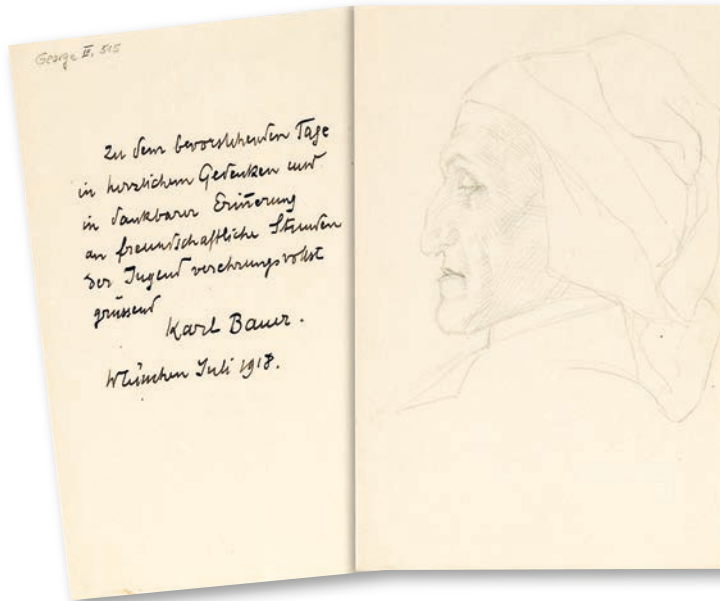 George III, 515
Zu dem bevorstehenden Tage
in herzlichem Gedenken und
in dankbarer Erinnerung
an freundschaftliche Stunden
der Jugend verehrungsvollst
grüssend
Karl Bauer.
München Juli 1918.